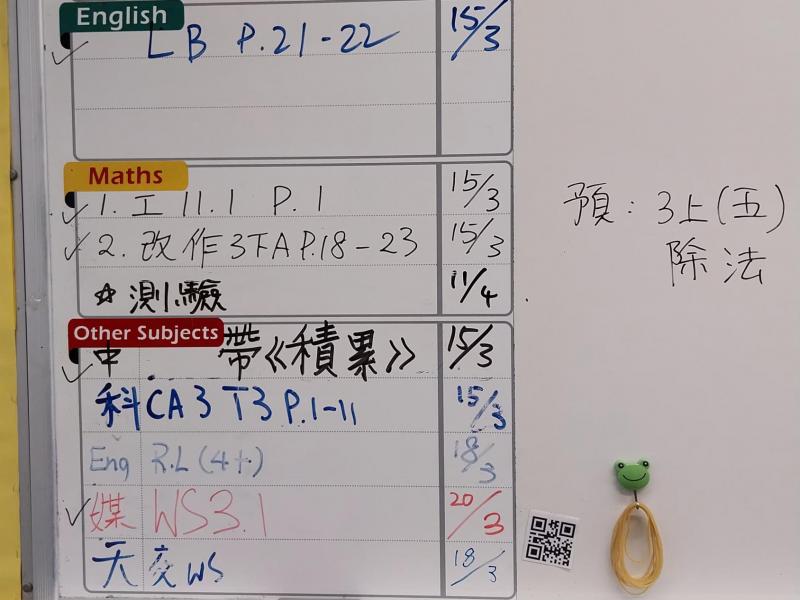 English
LB P.21-22 15/3
Maths
1. 工 11.1 P.1 15/3
2. 改作3下A P.18-23 15/3
☆ 測驗 11/4
Other Subjects
中 帶《積累》 15/3
科 CA3 T3 P.1-11 15/3
Eng R.L (4+) 18/3
媒 WS3.1 20/3
天 交 WS 18/3
預: 3上(五)
除法